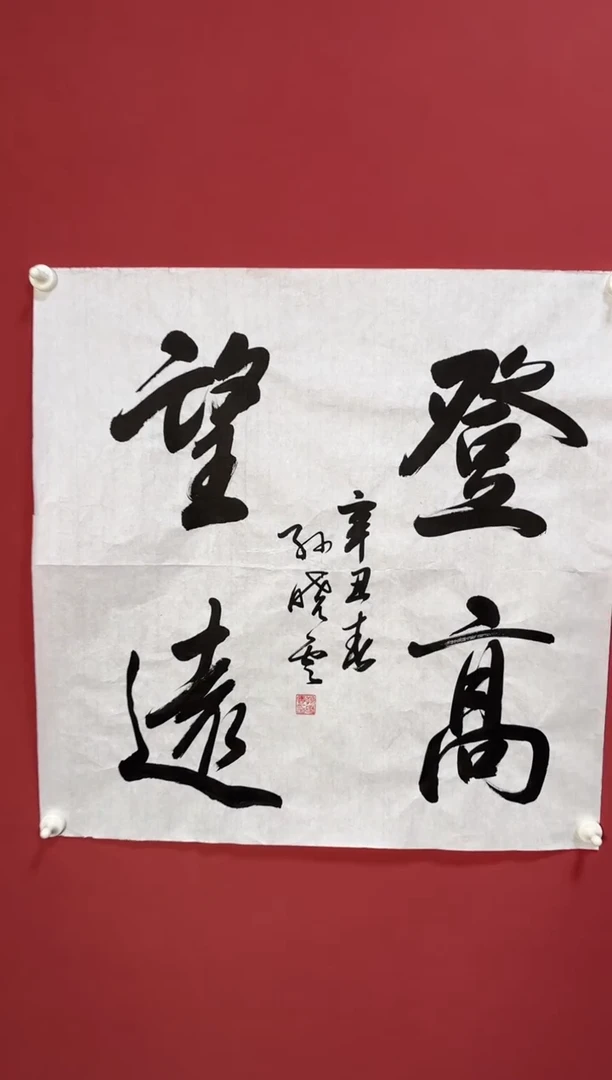 登高
望遠
辛丑春
孙晓云